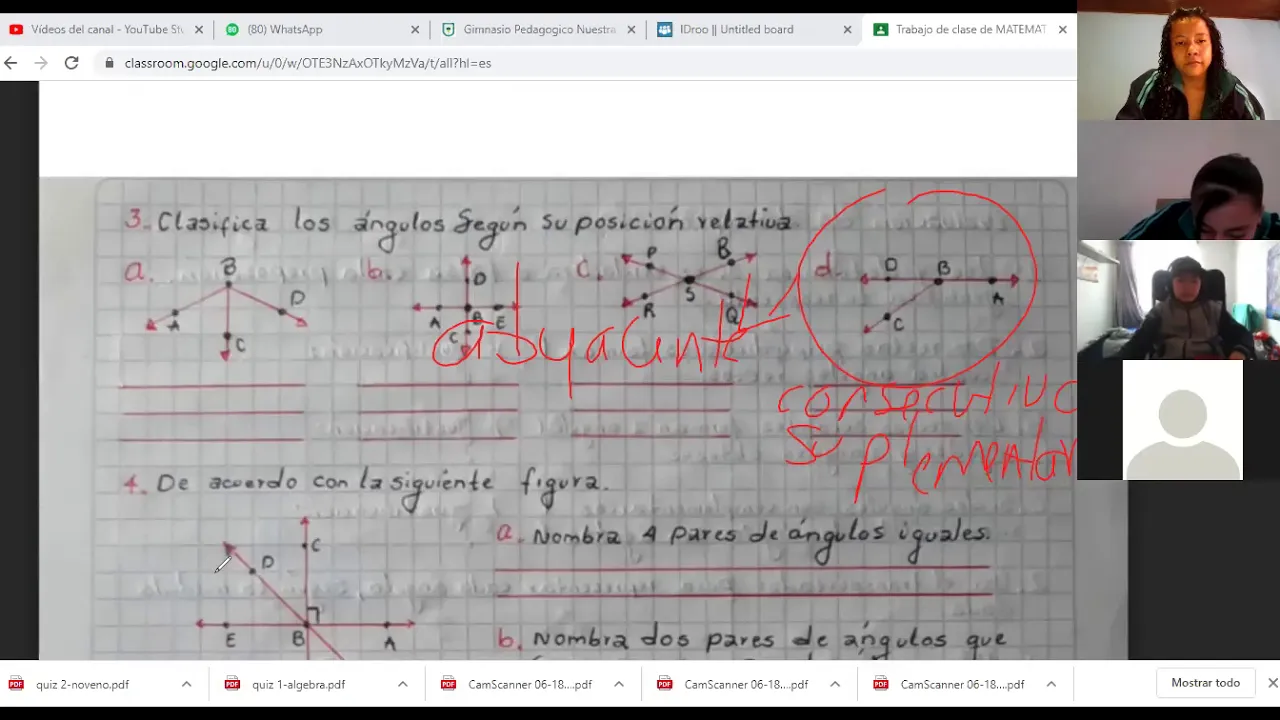 Vídeos del canal - YouTube St
(80) WhatsApp
Gimnasio Pedagogico Nuestra
IDroo || Untitled board
Trabajo de clase de MATEMAT
classroom.google.com/u/0/w/OTE3NzAxOTkyMzVa/t/all?hl=es
3. Clasifica los ángulos Según su posición relativa.
a. B A C D
b. D A B E C
c. P B S R Q
d. D B A C
adyacente
consecutivo
suplementar
4. De acuerdo con la siguiente figura.
C
D
E B A
a. Nombra 4 pares de ángulos iguales.
b. Nombra dos pares de ángulos que
quiz 2-noveno.pdf
quiz 1-algebra.pdf
CamScanner 06-18....pdf
CamScanner 06-18....pdf
CamScanner 06-18....pdf
Mostrar todo